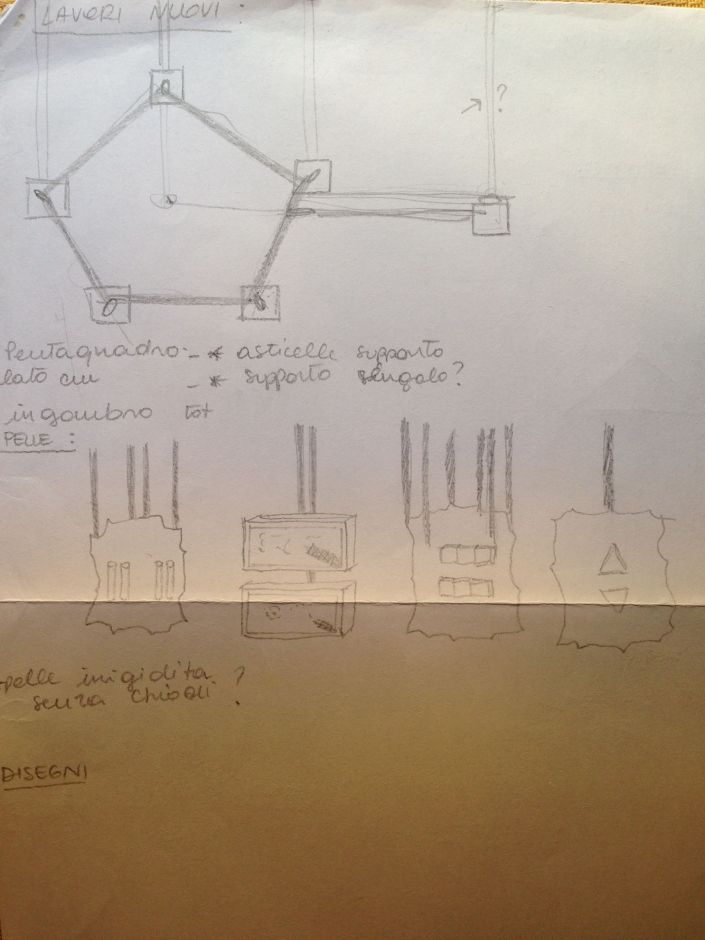 LAVORI NUOVI :
?
Pentaquadro - * asticelle supporto
lato cm - * supporto singolo?
ingombro tot
PELLE :
pelle irrigidita ?
senza chiodi
DISEGNI